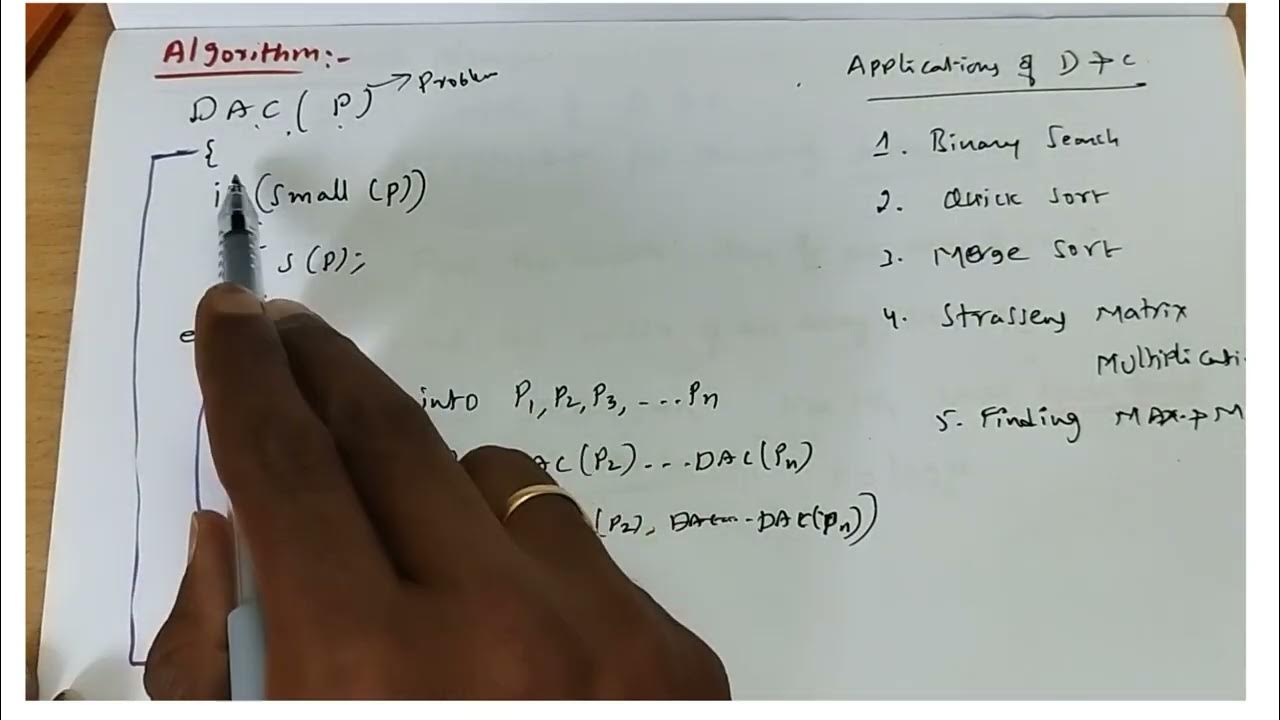 Algorithm:-
DAC(P) → Problem
{
(small (P))
S(P);
into P1, P2, P3, ---- Pn
AC(P2) --- DAC(Pn)
(P2), DAC(Pn))
Applications of D & C
1. Binary Search
2. Quick Sort
3. Merge Sort
4. Strassens Matrix
Multiplicati
5. Finding MAX & M